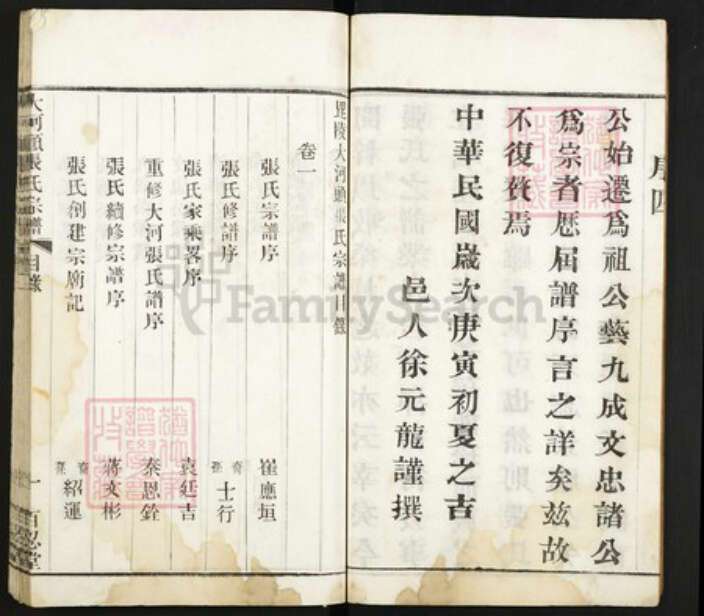 序四
公始遷爲祖公藝九成文忠諸公
爲宗者歷屆譜序言之詳矣玆故
不復贅焉
中華民國歲次庚寅初夏之吉
邑人徐元龍謹撰
毘陵大河頭張氏宗譜目錄
卷一
張氏宗譜序 崔應垣
張氏修譜序 裔孫士行
張氏家乘畧序 袁廷吉
重修大河張氏譜序 秦恩銓
張氏續修宗譜序 蔣文彬
張氏創建宗廟記 裔孫紹運
大河頭張氏宗譜 目錄 一 百忍堂
FamilySearch